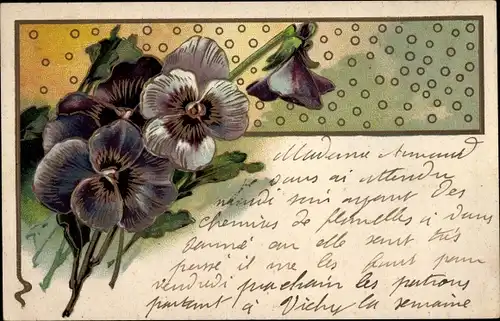 Madame Armand
vous ai attendu
mardi soir ayant des
chemises de flanelles à vous
donné car elle sont très
pressé il me les faut pour
vendredi prochain les patrons
partant à Vichy la semaine